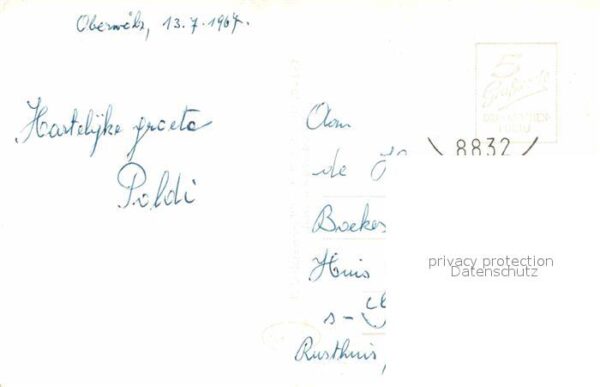 Oberwölz, 13.7.1967.
Hartelijke groete
Poldi
8832
Aan
de H
Boekes
Huis
s-
Rusthuis,
privacy protection
Datenschutz